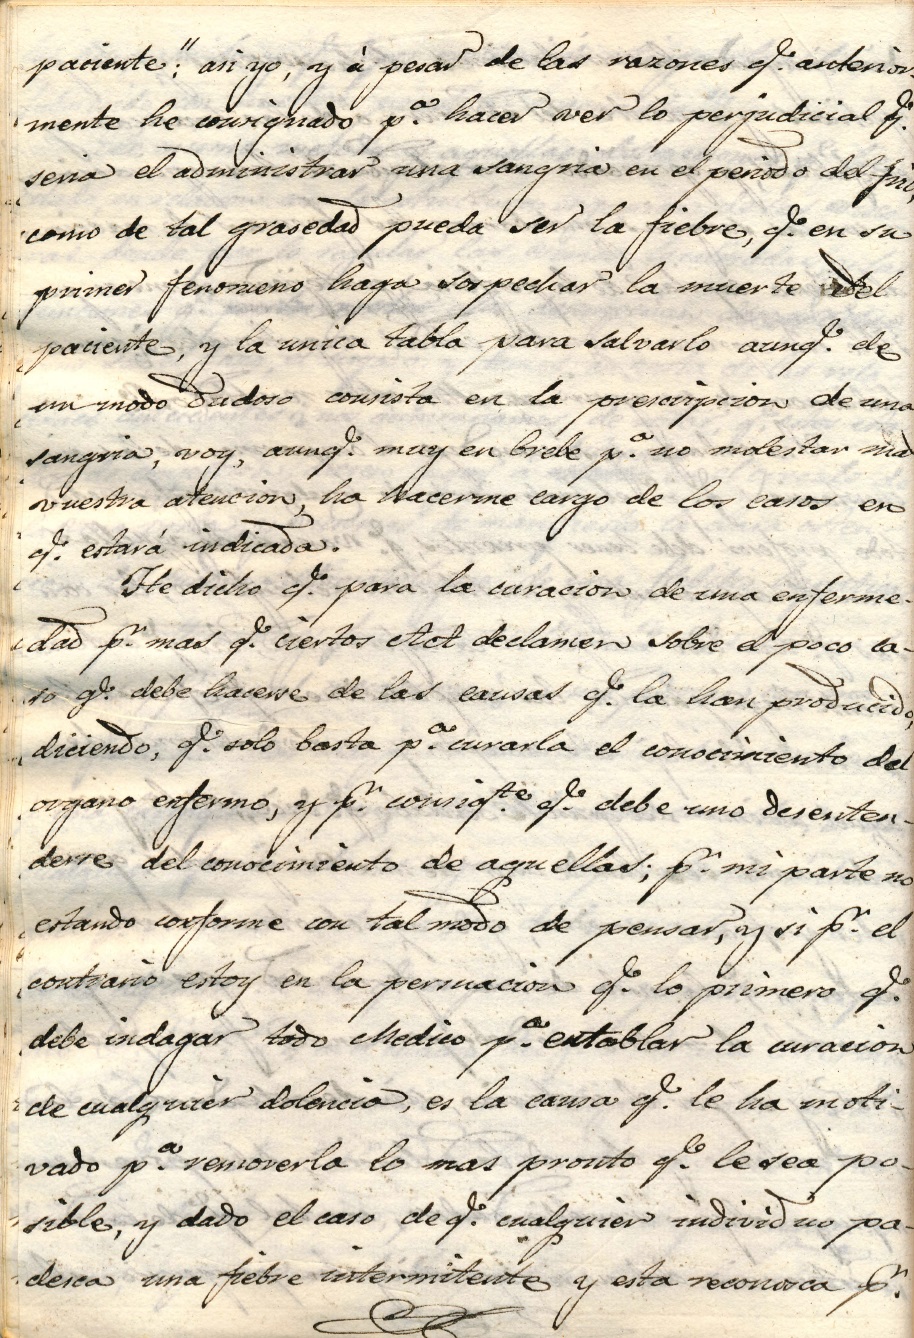 paciente"; asi yo, y á pesar de las razones q.e anterior
mente he consignado p.a hacer ver lo perjudicial q.e
seria el administrar una sangria en el periodo del frio,
como de tal grabedad pueda ser la fiebre, q.e en su
primer fenomeno haga sospechar la muerte del
paciente, y la unica tabla para salvarlo aunq.e de
un modo dudoso consista en la prescripcion de una
sangria, voy, aunq.e muy en brebe p.a no molestar mas
vuestra atencion, ha hacerme cargo de los casos en
q.e estará indicada.
He dicho q.e para la curacion de una enferme-
dad p.r mas q.e ciertos Act declamen sobre el poco ca-
so q.e debe hacerse de las causas q.e la han producido,
diciendo, q.e solo basta p.a curarla el conocimiento del
organo enfermo, y p.r consig.te q.e debe uno desenten-
derse del conocimiento de aquellas; p.r mi parte no
estando conforme con tal modo de pensar, y si p.r el
contrario estoy en la persuacion q.e lo primero q.e
debe indagar todo Medico p.a entablar la curacion
de cualquier dolencia, es la causa q.e le ha moti-
vado p.a removerla lo mas pronto q.e le sea po-
sible, y dado el caso de q.e cualquier individuo pa-
desca una fiebre intermitente y esta reconosca p.r